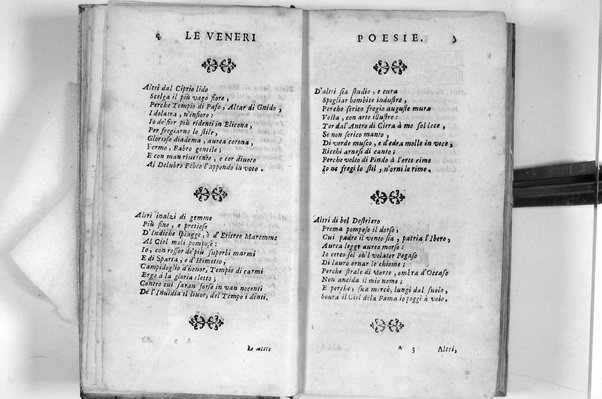 4 LE VENERI
Altri dal Ciprio lido
Scelga il più vago fiore,
Perche Tempio di Pafo, Altar di Gnido,
Idolatra, n'infiore:
Io de' fior più ridenti in Elicona,
Per fregiarne lo stile,
Glorioso diadema, aurea corona,
Formo, Fabro gentile;
E con man riverente, e cor divoto
Al Delubro Febeo l'appendo in voto.
Altri inalzi di gemme
Più fine, e pretiose
D'Indiche spiagge, ò d'Eritree Maremme
Al Ciel moli pompose:
Io, con rossor de' più superbi marmi
E di Sparta, e d'Himetto,
Campidoglio d'honor, Tempio di carmi
Ergo a la gloria eletto;
Contro cui saran forse in van nocenti
De l'Invidia il livor, del Tempo i denti.
D'altri
POESIE. 5
D'altri sia studio, e cura
Spogliar bombice industre,
Perche serico fregio auguste mura
Vesta, con arte illustre:
Tor dal Antro di Cirra à me sol lece,
Se non serico manto,
Di verde musco, e d'edra molle in vece,
Ricchi arnesi di canto;
Perche volto di Pindo à l'erte cime
Io ne fregi lo stil, n'orni le rime.
Altri di bel Destriero
Prema pomposo il dorso,
Cui padre il vento sia, patria l'Ibero,
Aurea legge aureo morso:
Io cerco sol in'l volator Pegaso
Di lauro ornar le chiome;
Perche strale di Morte, ombra d'Occaso
Non ancida il mio nome;
E perche, sua mercè, lungi dal suolo,
Sovra il Ciel de la Fama io poggi à volo.
A 3 Altri,